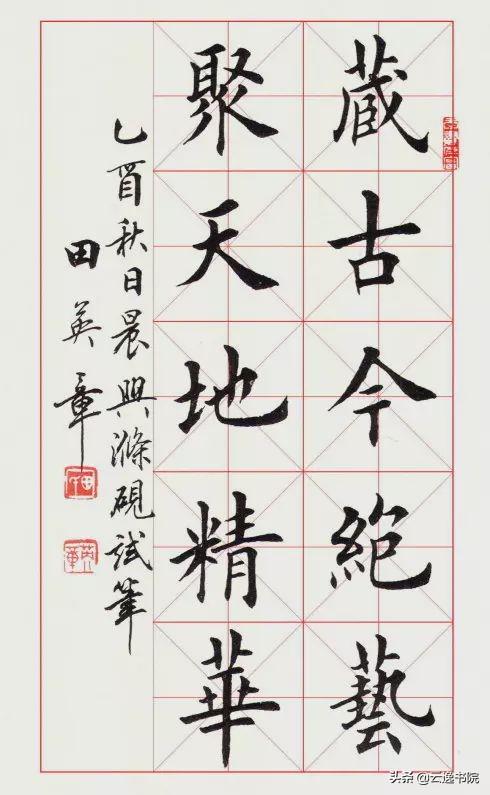 藏古今絕藝
聚天地精華
乙酉秋日晨興滌硯試筆
田英章
英章
头条@云逸书院